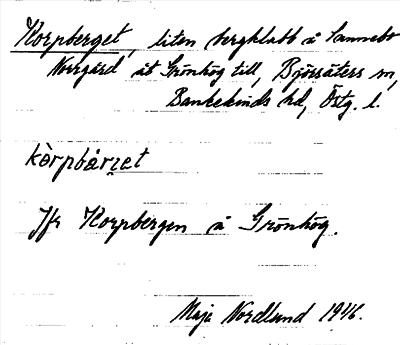 Korpberget, liten bergklabb å Sannebo
Norrgård åt Grönhög till, Björsäters sn,
Bankekinds hd, Östg. l.
kòrpbårɪet
Jfr Korpbergen å Grönhög.
Maja Nordlund 1946.